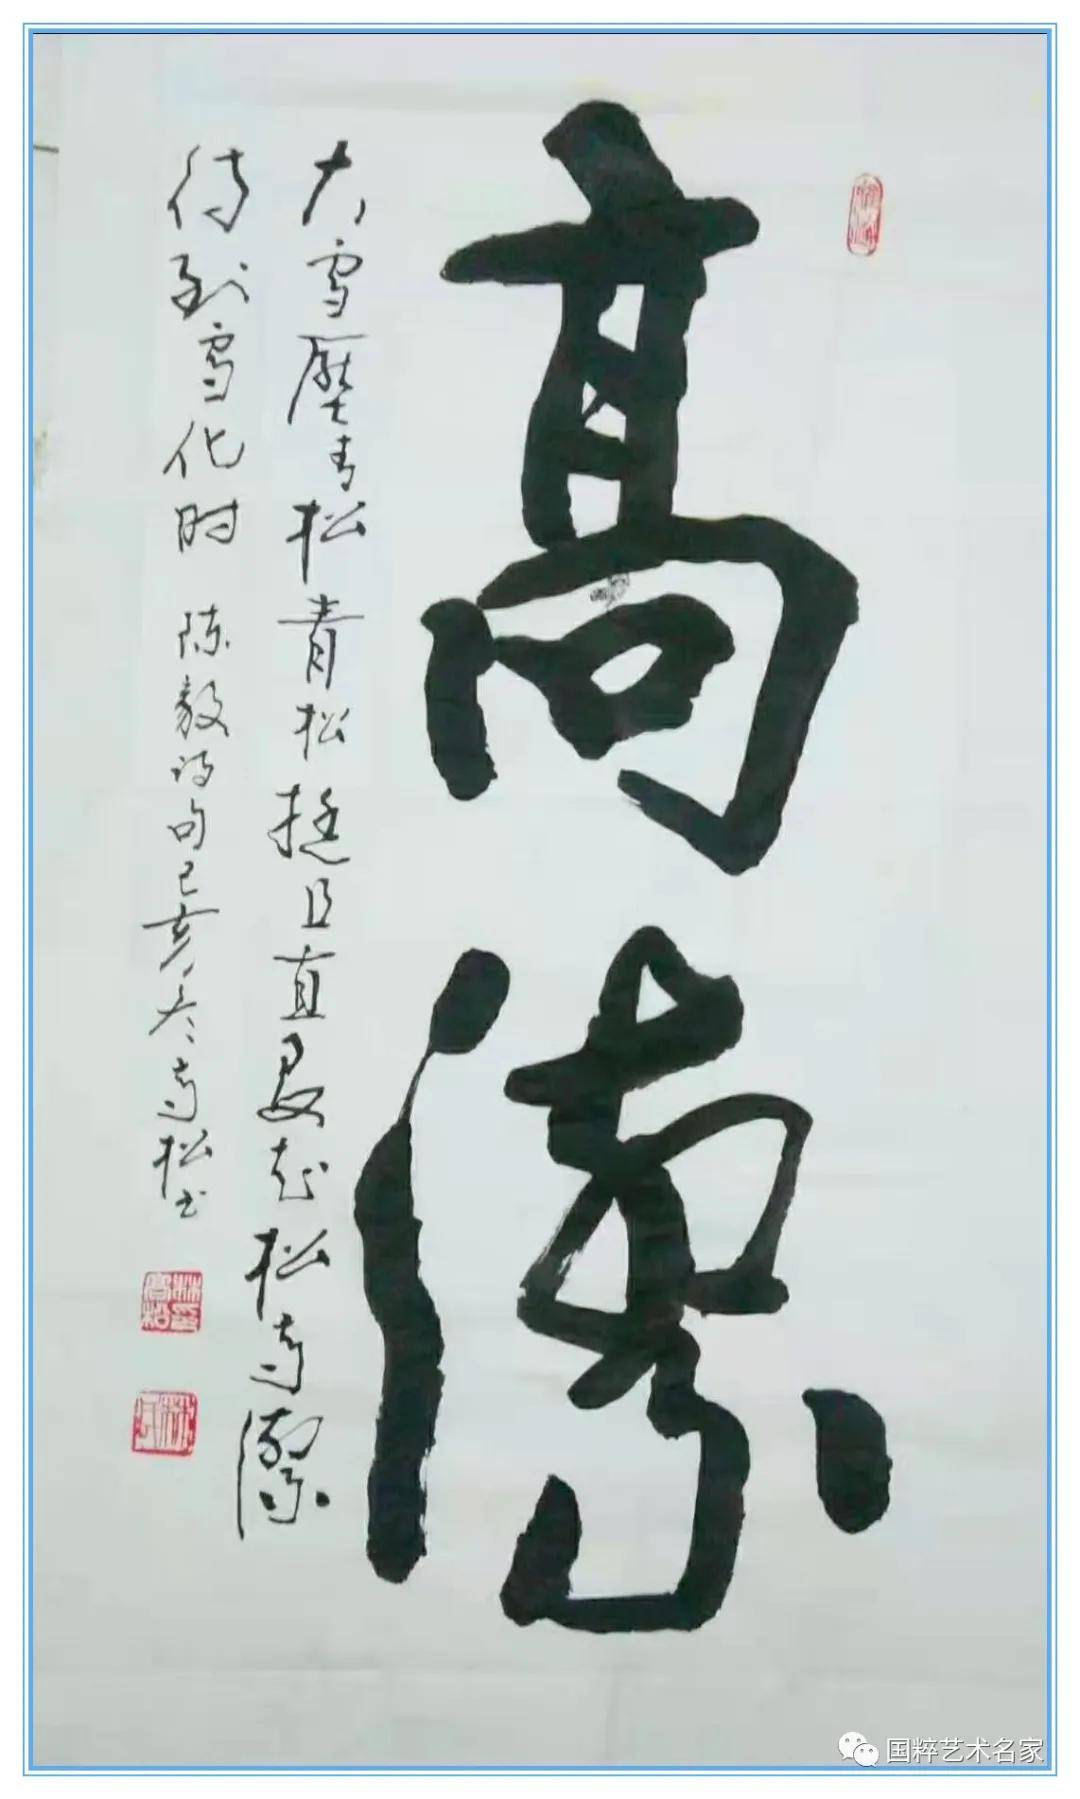 高洁
大雪壓青松青松挺且直要知松高潔
待到雪化时 陈毅诗句己亥冬高松书
林印高松
国粹艺术名家